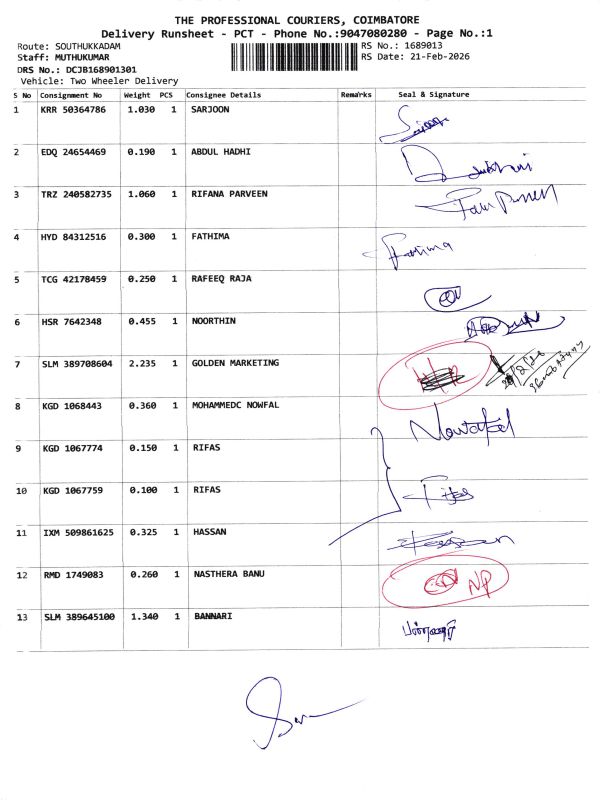 THE PROFESSIONAL COURIERS, COIMBATORE
Delivery Runsheet - PCT - Phone No.:9047080280 - Page No.:1
Route: SOUTHUKKADAM RS No.: 1689013
Staff: MUTHUKUMAR RS Date: 21-Feb-2026
DRS No.: DCJB168901301
Vehicle: Two Wheeler Delivery
S No Consignment No Weight PCS Consignee Details Remarks Seal & Signature
1 KRR 50364786 1.030 1 SARJOON
2 EDQ 24654469 0.190 1 ABDUL HADHI
3 TRZ 240582735 1.060 1 RIFANA PARVEEN
4 HYD 84312516 0.300 1 FATHIMA Fathima
5 TCG 42178459 0.250 1 RAFEEQ RAJA
6 HSR 7642348 0.455 1 NOORTHIN
7 SLM 389708604 2.235 1 GOLDEN MARKETING
8 KGD 1068443 0.360 1 MOHAMMEDC NOWFAL
9 KGD 1067774 0.150 1 RIFAS
10 KGD 1067759 0.100 1 RIFAS
11 IXM 509861625 0.325 1 HASSAN
12 RMD 1749083 0.260 1 NASTHERA BANU NP
13 SLM 389645100 1.340 1 BANNARI